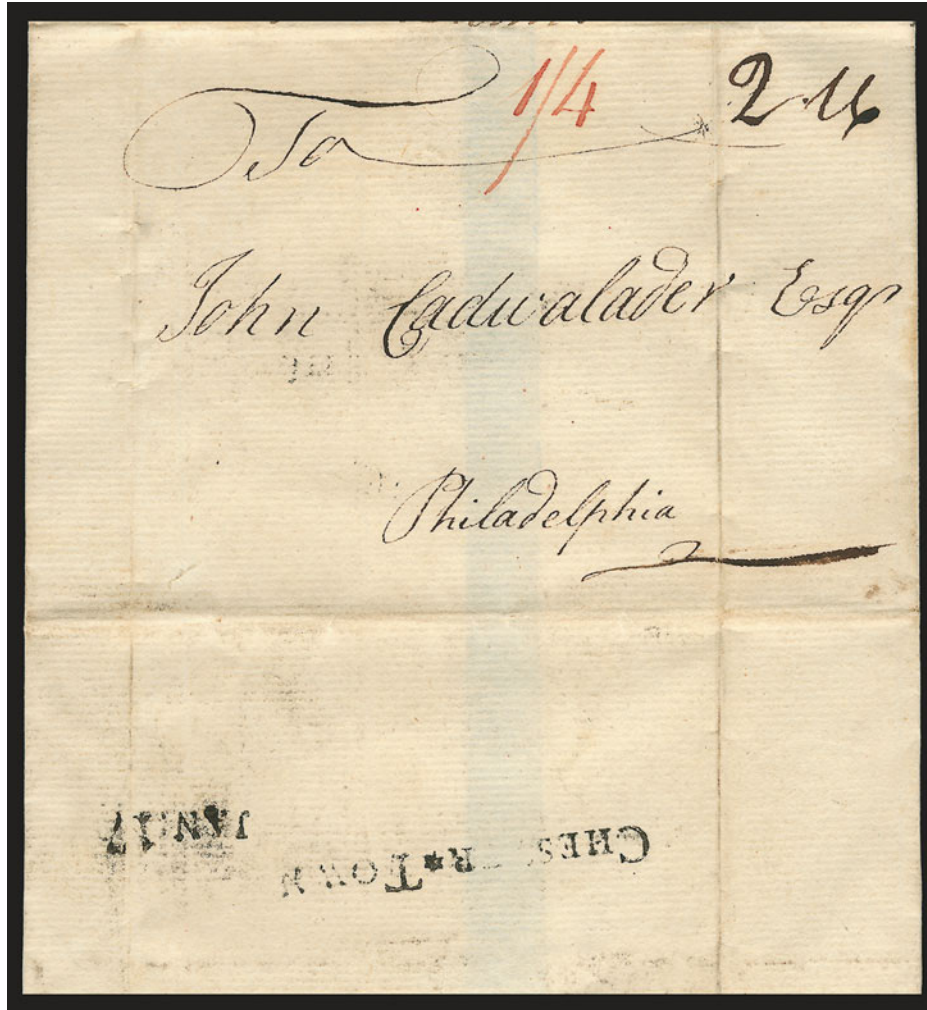 To 1/4 2.16
John Cadwalader Esqr
Philadelphia
JAN. 17
CHESTER*TOWN